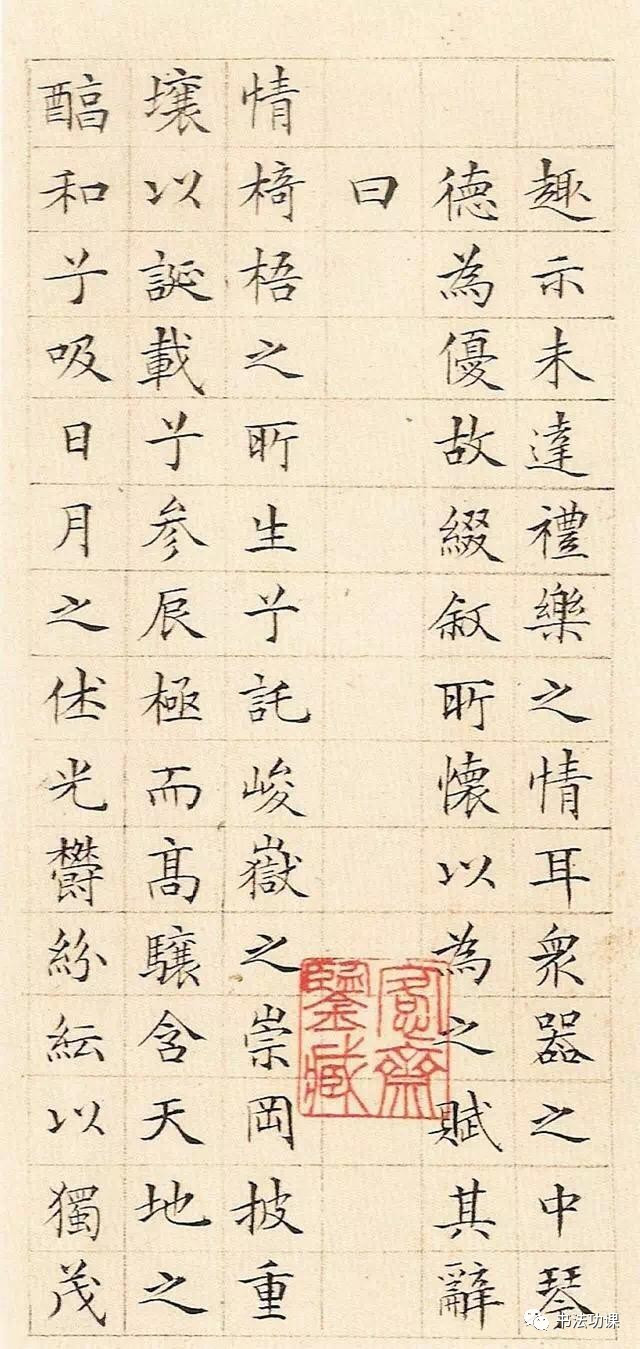 趣示未達禮樂之情耳衆器之中琴
德為優故綴敘所懷以為之賦其辭
曰
情椅梧之所生兮託峻嶽之崇岡披重
壤以誕載兮参辰極而高驤含天地之
醕和兮吸日月之休光鬱紛紜以獨茂
齋鑒藏
书法功课